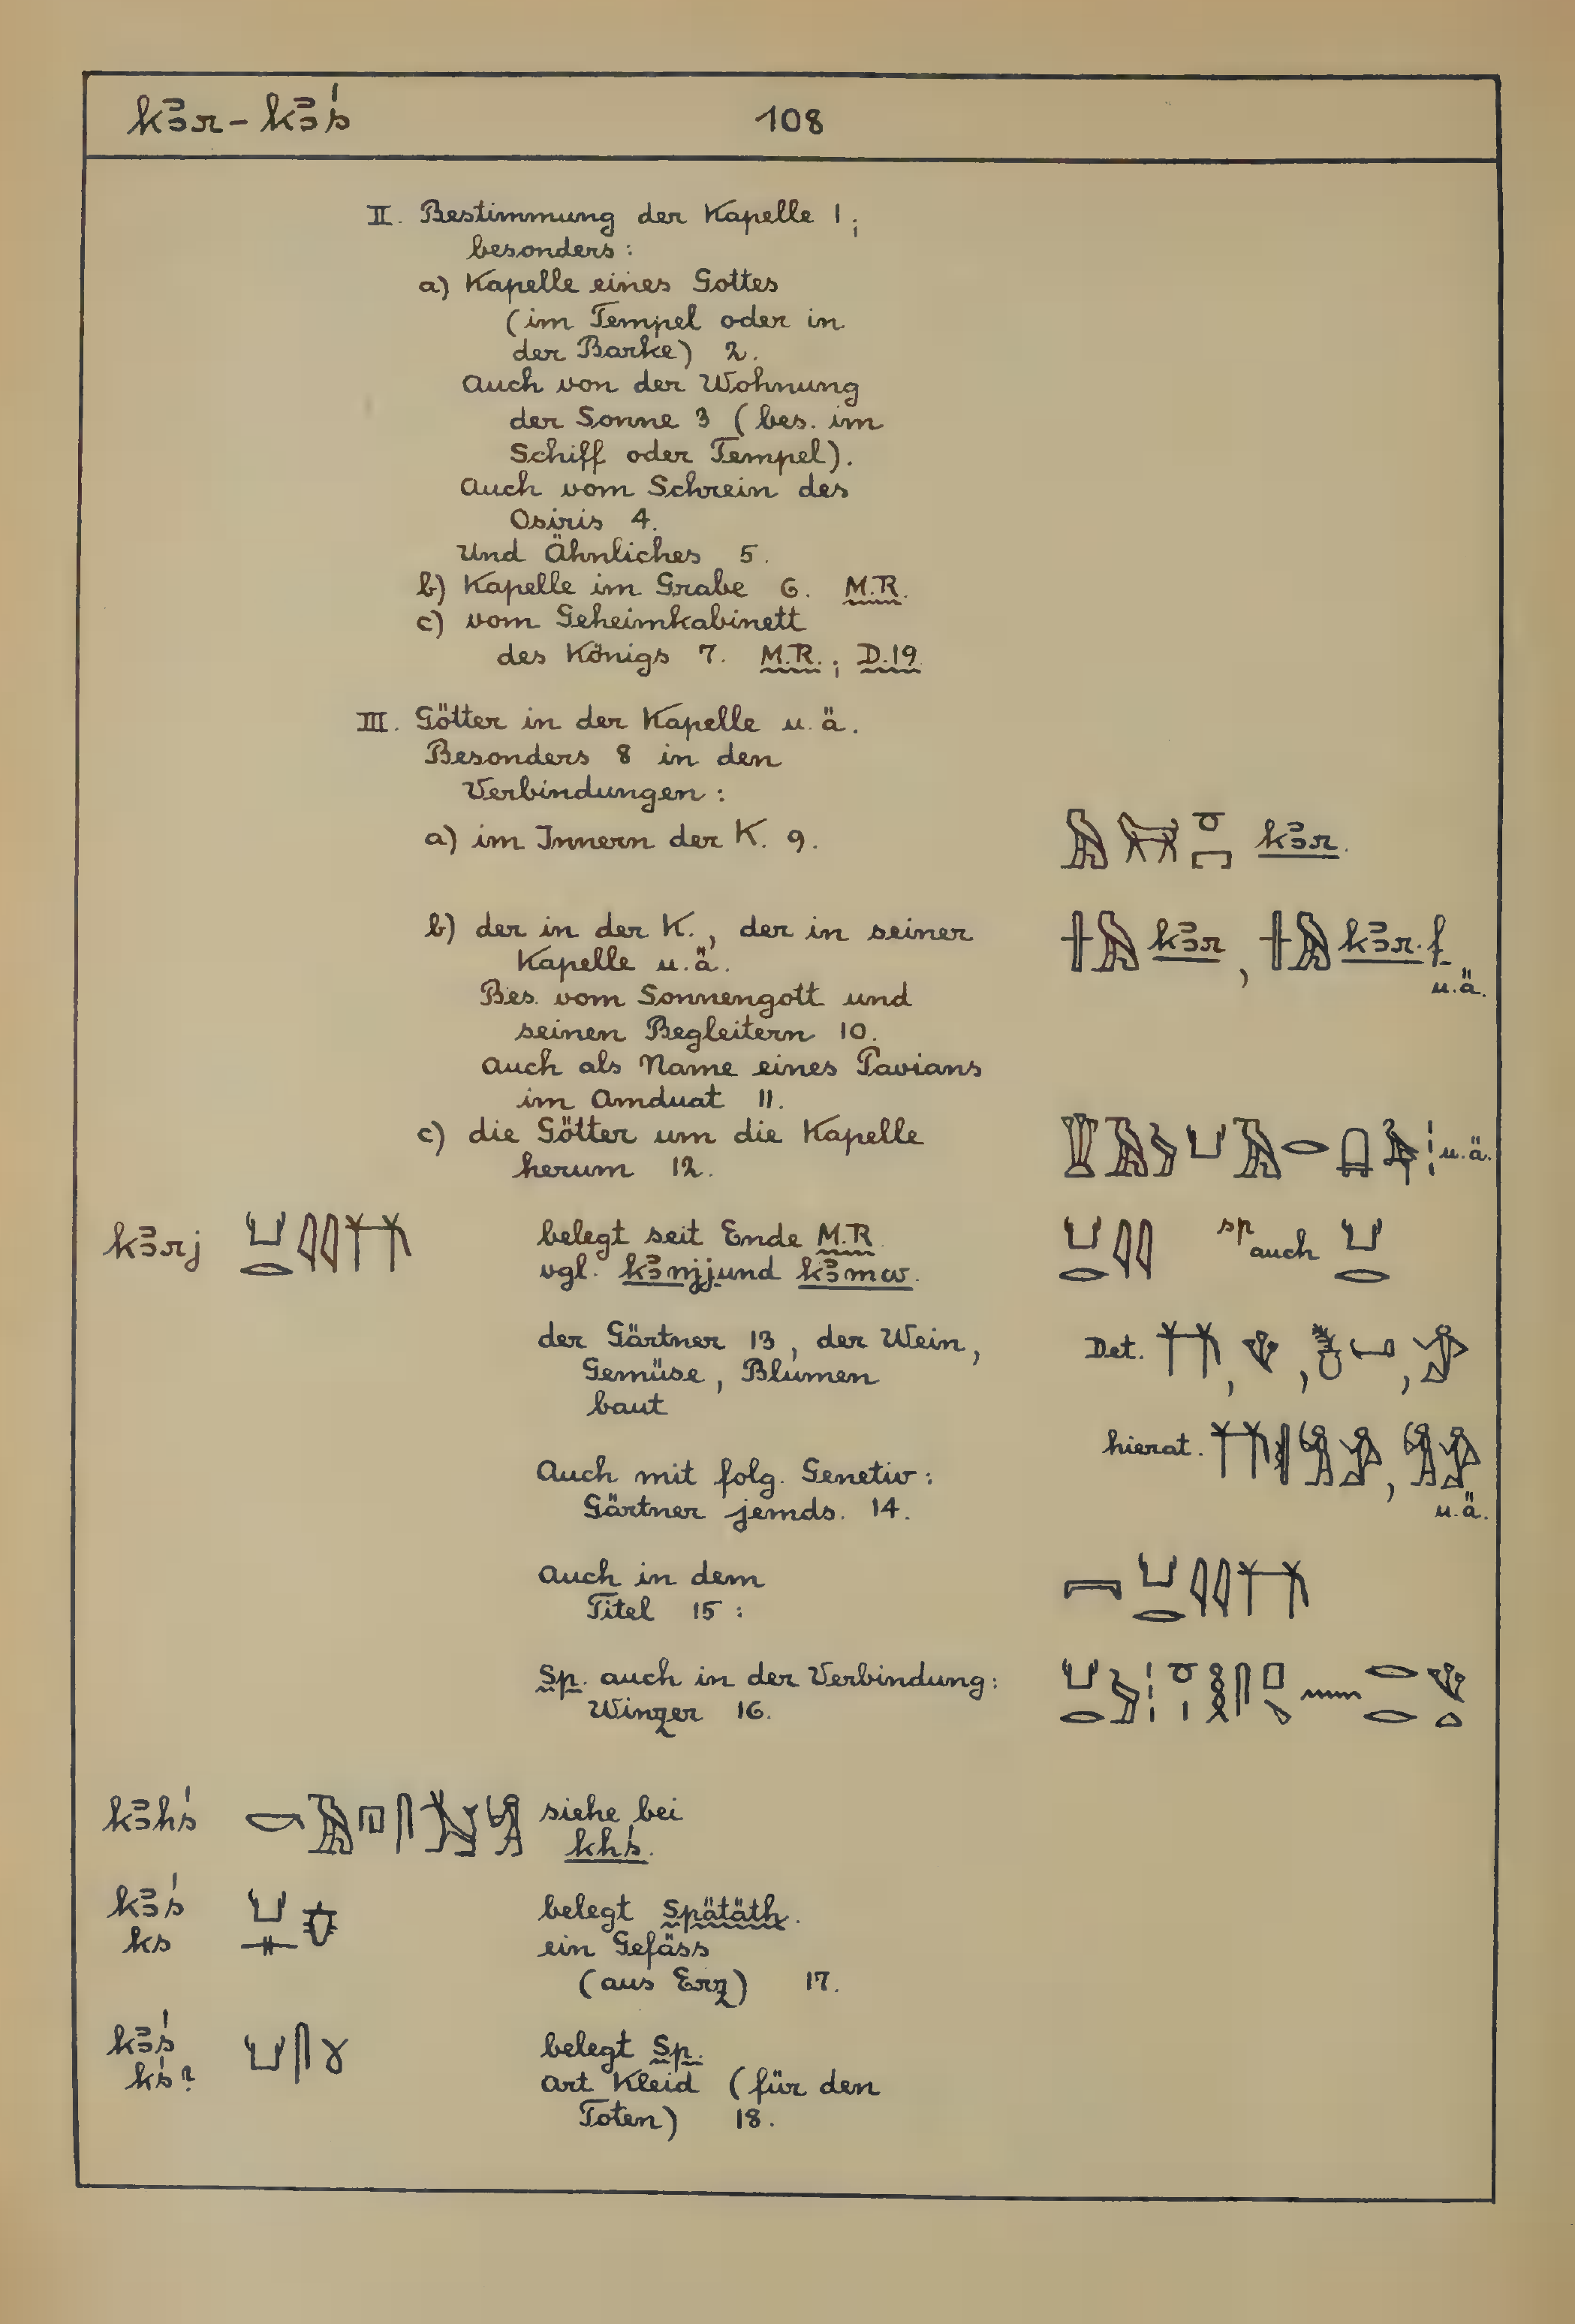 kꜣr - kꜣś 108
II. Bestimmung der Kapelle 1;
besonders:
a) Kapelle eines Gottes
(im Tempel oder in
der Barke) 2.
Auch von der Wohnung
der Sonne 3 (bes. im
Schiff oder Tempel).
Auch vom Schrein des
Osiris 4.
Und Ähnliches 5.
b) Kapelle im Grabe 6. M.R.
c) vom Geheimkabinett
des Königs 7. M.R.; D.19
III. Götter in der Kapelle u.ä.
Besonders 8 in den
Verbindungen:
a) im Innern der K. 9. kꜣr.
b) der in der K., der in seiner kꜣr, kꜣr.f
Kapelle u.ä. u.ä.
Bes. vom Sonnengott und
seinen Begleitern 10.
Auch als Name eines Pavians
im Amduat 11.
c) die Götter um die Kapelle u.ä.
herum 12.
kꜣrj belegt seit Ende M.R. sp auch
vgl. kꜣnjj und kꜣmw.
der Gärtner 13, der Wein, Det.
Gemüse, Blumen
baut
hierat.
Auch mit folg. Genetiv:
Gärtner jemds. 14. u.ä.
Auch in dem
Titel 15:
Sp. auch in der Verbindung:
Winzer 16.
kꜣhś siehe bei
khś.
kꜣś belegt Spätäth.
ks ein Gefäss
(aus Erz) 17.
kꜣś belegt Sp.
kś? Art Kleid (für den
Toten) 18.